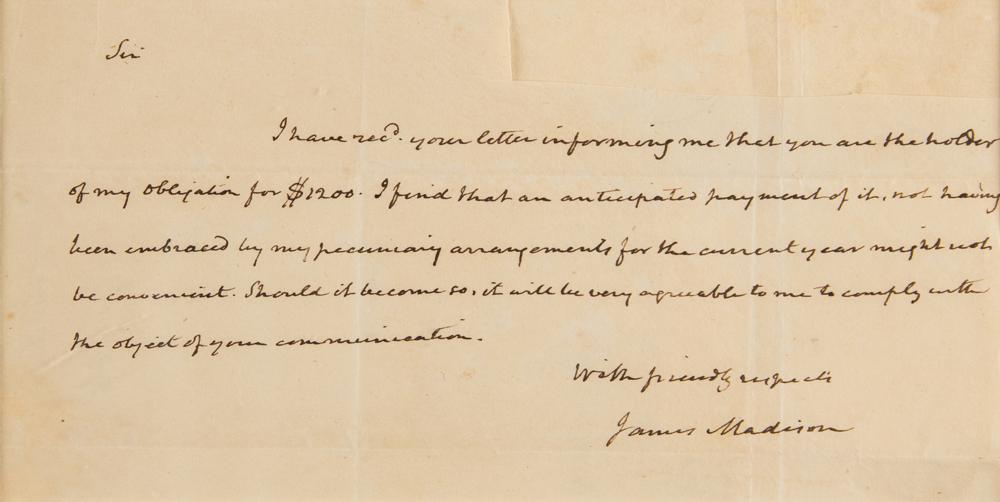 Sir
I have recd. your letter informing me that you are the holder
of my obligation for $1200. I find that an anticipated payment of it, not having
been embraced by my pecuniary arrangements for the current year might not
be convenient. Should it become so, it will be very agreeable to me to comply with
the object of your communication.
With friendly respects
James Madison